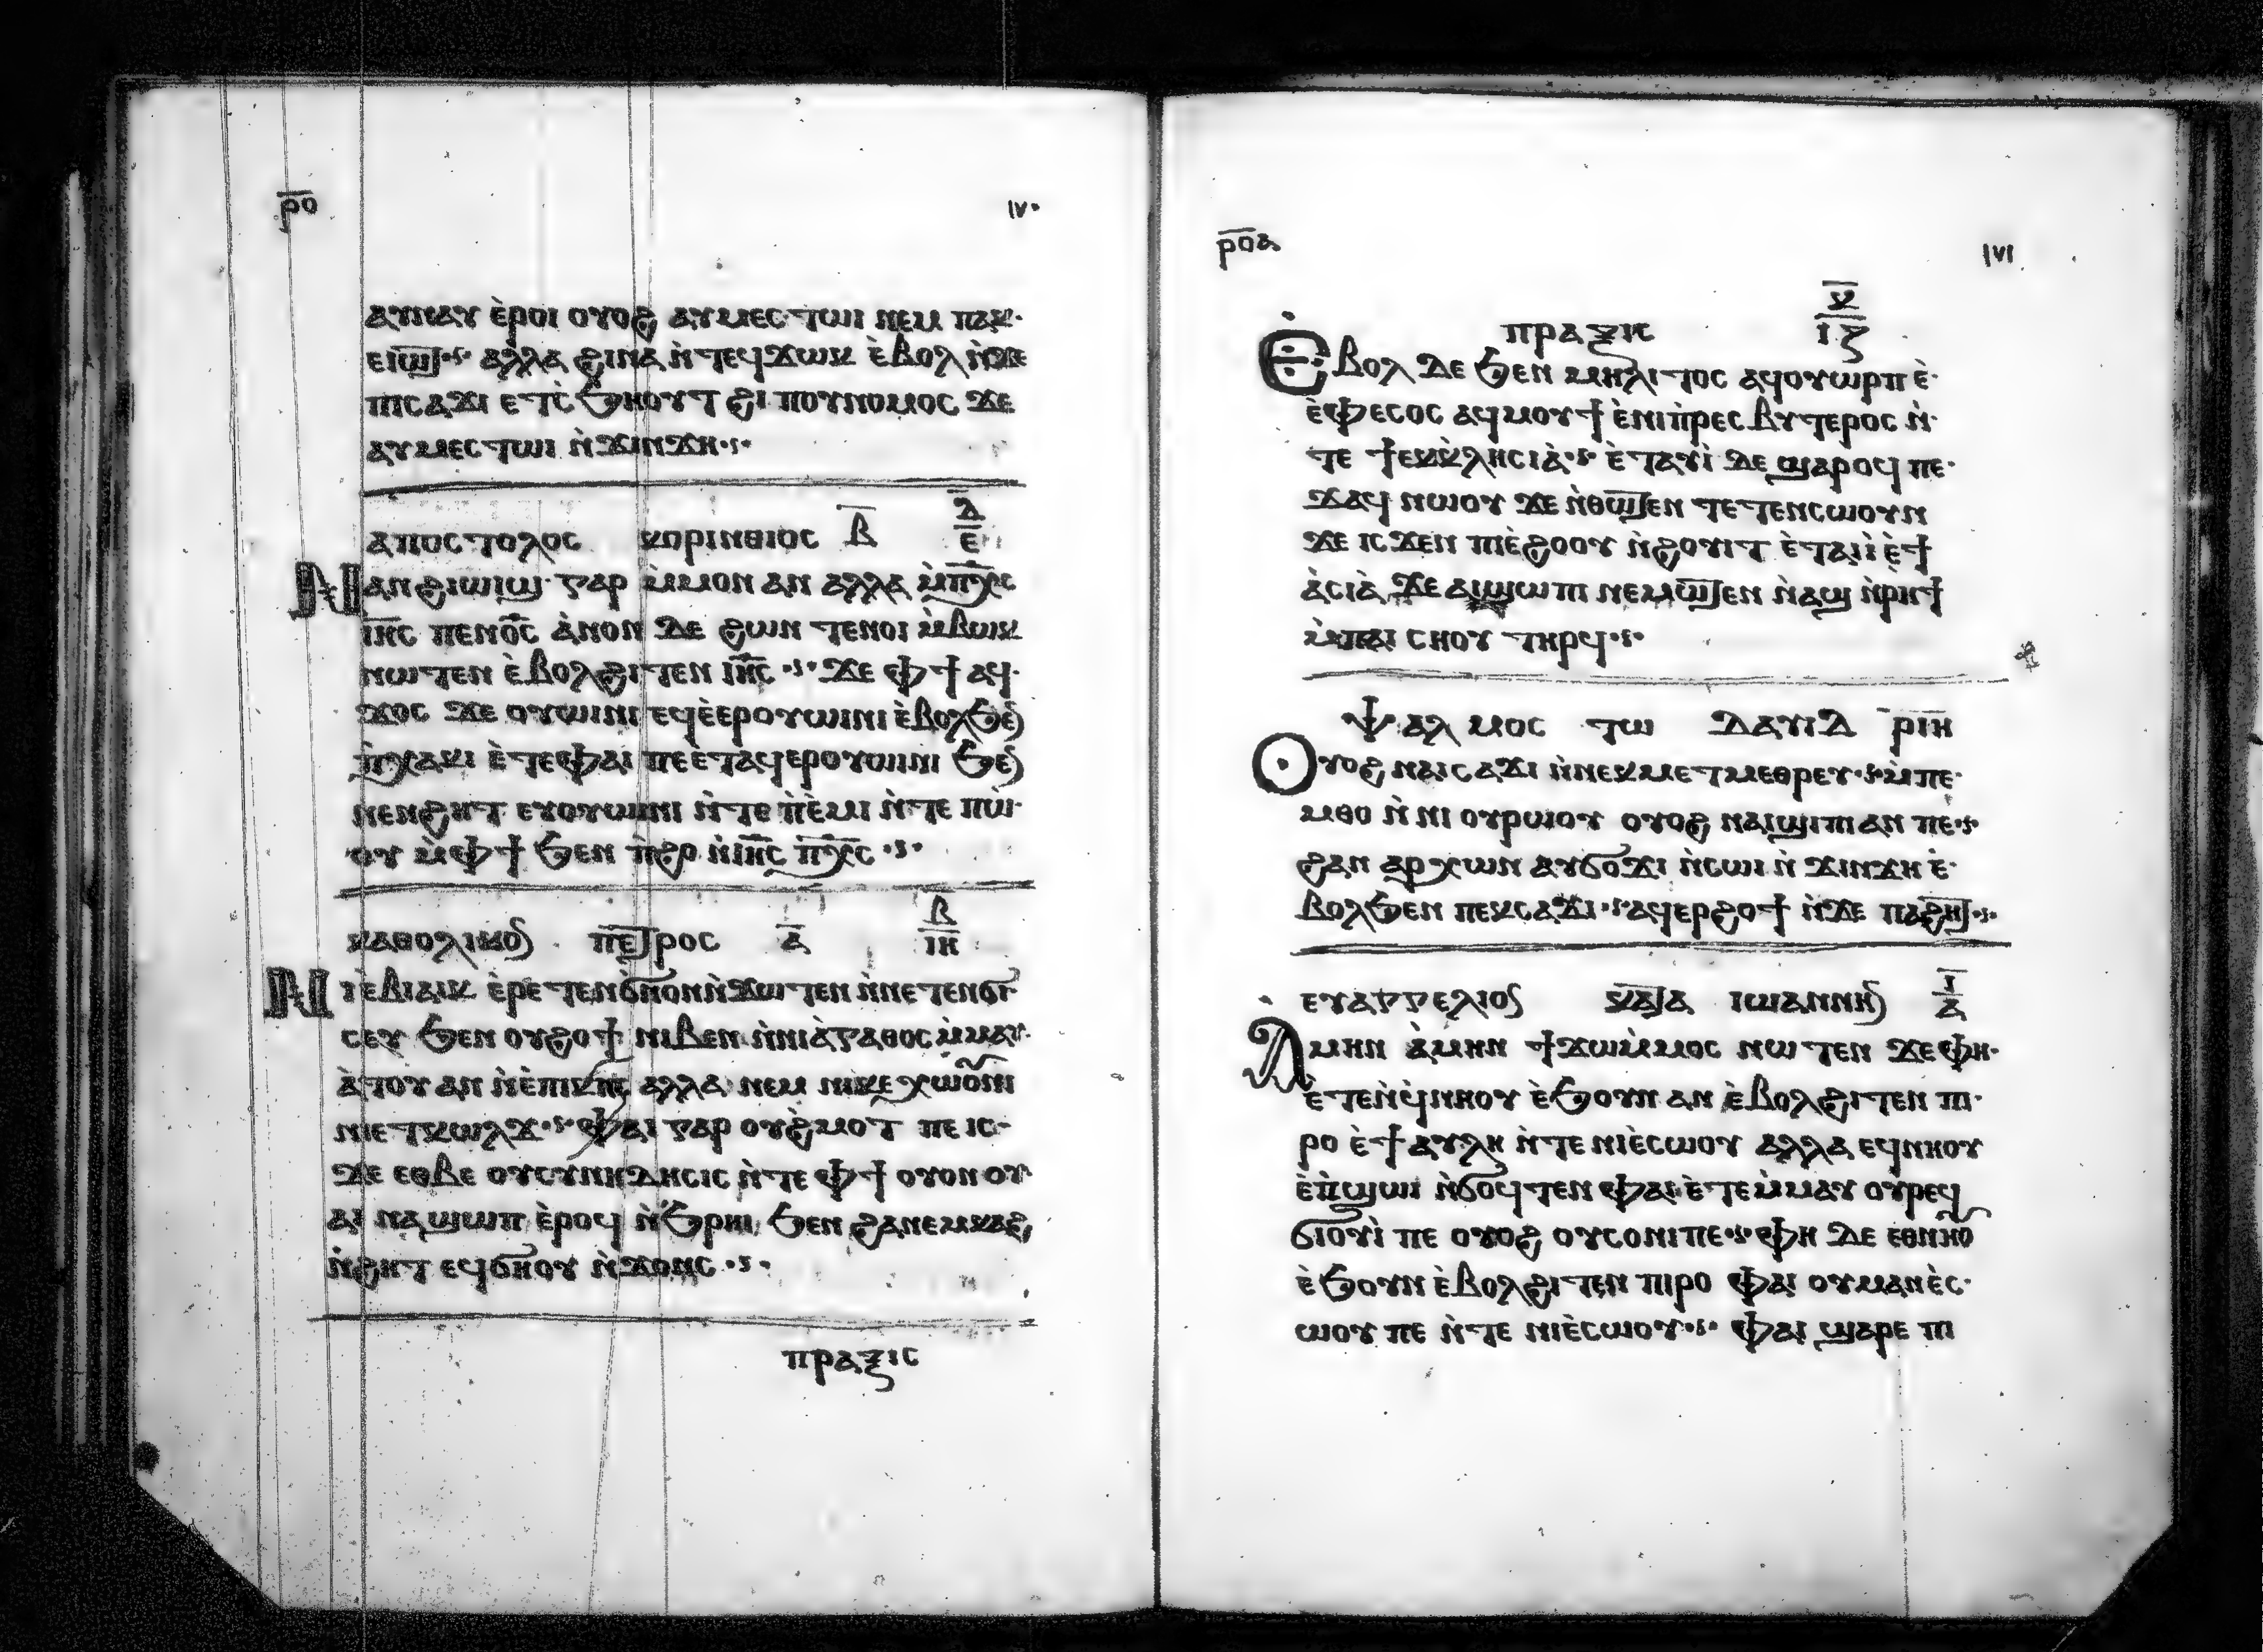 ⲣ̅ⲟ̅ ⲓⲩ·
ⲁⲩⲛⲁⲩ ⲉ̀ⲣⲟⲓ ⲟⲩⲟϩ ⲁⲩⲙⲉⲥⲧⲱⲓ ⲛⲉⲙ ⲡⲁⲕ·
ⲉⲓⲱⲧ ⲁⲗⲗⲁ ϩⲓⲛⲁ ⲛ̀ⲧⲉϥϫⲱⲕ ⲉ̀ⲃⲟⲗ ⲛ̀ϫⲉ
ⲡⲓⲥⲁϫⲓ ⲉⲧⲥ̀ϧⲏⲟⲩⲧ ϩⲓ ⲡⲟⲩⲛⲟⲙⲟⲥ ϫⲉ
ⲁⲩⲙⲉⲥⲧⲱⲓ ⲛ̀ϫⲓⲛϫⲏ
ⲁⲡⲟⲥⲧⲟⲗⲟⲥ ⲕⲟⲣⲓⲛⲑⲓⲟⲥ ⲃ̅ ⲇ̅ ⲉ̅
ⲛⲁⲛϩⲓⲱⲓϣ ⲅⲁⲣ ⲙ̀ⲙⲟⲛ ⲁⲛ ⲁⲗⲗⲁ ⲙ̀ⲡ̅ⲭ̅ⲥ
ⲓ̅ⲏ̅ⲥ ⲡⲉⲛⲟ̅ⲥ̅ ⲁ̀ⲛⲟⲛ ⲇⲉ ϩⲱⲛ ⲧⲉⲛⲟⲓ ⲙ̀ⲃⲱⲕ
ⲛⲱⲧⲉⲛ ⲉ̀ⲃⲟⲗϩⲓⲧⲉⲛ ⲓ̅ⲏ̅ⲥ ϫⲉ ⲫϯ ⲁϥ·
ϫⲟⲥ ϫⲉ ⲟⲩⲱⲓⲛⲓ ⲉϥⲉ̀ⲉⲣⲟⲩⲱⲓⲛⲓ ⲉ̀ⲃⲟⲗϧⲉⲛ
ⲡ̀ⲭⲁⲕⲓ ⲉ̀ⲧⲉⲫⲁⲓ ⲡⲉⲉ̀ⲧⲁϥⲉⲣⲟⲩⲱⲓⲛⲓ ϧⲉⲛ
ⲛⲉⲛϩⲏⲧ ⲉⲩⲟⲩⲱⲓⲛⲓ ⲛ̀ⲧⲉ ⲡ̀ⲉ̀ⲙⲓ ⲛ̀ⲧⲉ ⲡⲱ̀·
ⲟⲩ ⲙ̀ⲫϯ ϧⲉⲛ ⲡ̀ϩⲟ ⲛ̀ⲓ̅ⲏ̅ⲥ ⲡ̅ⲭ̅ⲥ
ⲕⲁⲑⲟⲗⲓⲕⲟⲛ ⲡⲉⲧⲣⲟⲥ ⲁ̅ ⲃ̅ ⲓ̅ⲏ̅
ⲛⲓⲉ̀ⲃⲓⲁⲓⲕ ⲉ̀ⲣⲉⲧⲉⲛϭ̀ⲛⲟⲛⲛ̀ϫⲱⲧⲉⲛ ⲛ̀ⲛⲉⲧⲉⲛϭⲓ
ⲥⲉⲩ ϧⲉⲛ ⲟⲩϩⲟϯ ⲛⲓⲃⲉⲛ ⲛ̀ⲛⲓⲁ̀ⲅⲁⲑⲟⲥ ⲙ̀ⲙⲁⲩ·
ⲁ̀ⲧⲟⲩ ⲁⲛ ⲛ̀ⲉ̀ⲡⲓⲕⲏⲥ ⲁⲗⲗⲁ ⲛⲉⲙ ⲛⲓⲕⲉⲭⲱⲟⲩⲛⲓ
ⲛⲓⲉⲧⲕⲱⲗϫ ⲫⲁⲓ ⲅⲁⲣ ⲟⲩϩ̀ⲙⲟⲧ ⲡⲉ ⲓⲥ·
ϫⲉ ⲉⲑⲃⲉ ⲟⲩⲥⲩⲛⲏⲇⲏⲥⲓⲥ ⲛ̀ⲧⲉ ⲫϯ ⲟⲩⲟⲛ ⲟⲩ·
ⲁⲓ ⲛⲁϣⲱⲡ ⲉ̀ⲣⲟϥ ⲛ̀ϧⲣⲏⲓ ϧⲉⲛ ϩⲁⲛⲉⲙⲕⲁϩ
ⲛ̀ϩⲏⲧ ⲉϥϭⲏⲟⲩ ⲛ̀ϫⲟⲛⲥ
ⲡⲣⲁⲝⲓⲥ
ⲣ̅ⲟ̅ⲁ ⲓⲩⲓ
ⲡⲣⲁⲝⲓⲥ ⲕ̅ ⲓ̅ⲍ̅
ⲉⲃⲟⲗ ⲇⲉ ϧⲉⲛ ⲙⲏⲗⲓⲧⲟⲥ ⲁϥⲟⲩⲱⲣⲡ ⲉ̀·
ⲉ̀ⲫⲉⲥⲟⲥ ⲁϥⲙⲟⲩϯ ⲉ̀ⲛⲓⲡ̀ⲣⲉⲥⲃⲩⲧⲉⲣⲟⲥ ⲛ̀·
ⲧⲉ ϯⲉⲕⲕ̀ⲗⲏⲥⲓⲁ̀ ⲉ̀ⲧⲁⲩⲓ̀ ⲇⲉ ϣⲁⲣⲟϥ ⲡⲉ·
ϫⲁϥ ⲛⲱⲟⲩ ϫⲉ ⲛ̀ⲑⲱⲧⲉⲛ ⲧⲉⲧⲉⲛⲥⲱⲟⲩⲛ
ϫⲉ ⲓⲥϫⲉⲛ ⲡⲓⲉ̀ϩⲟⲟⲩ ⲛ̀ϩⲟⲩⲓⲧ ⲉ̀ⲧⲁⲓⲓ̀ ⲉ̀ϯ
ⲁ̀ⲥⲓⲁ̀ ϫⲉ ⲁⲓϣⲱⲡⲓ ⲛⲉⲙⲱⲧⲉⲛ ⲛ̀ⲁϣ ⲛ̀ⲣⲏϯ
ⲙ̀ⲡⲁⲓ ⲥⲏⲟⲩ ⲧⲏⲣϥ
ⲯⲁⲗⲙⲟⲥ ⲧⲱ ⲇⲁⲩⲓⲇ ⲣ̅ⲓ̅ⲏ̅
ⲟⲩⲟϩ ⲛⲁⲓⲥⲁϫⲓ ⲛ̀ⲛⲉⲕⲙⲉⲧⲙⲉⲑⲣⲉⲩ ⲙ̀ⲡⲉ·
ⲙⲑⲟ ⲛ̀ⲛⲓ ⲟⲩⲣⲱⲟⲩ ⲟⲩⲟϩ ⲛⲁⲓϣⲓⲡⲓ ⲁⲛ ⲡⲉ
ϩⲁⲛ ⲁⲣⲭⲱⲛ ⲁⲩϭⲟϫⲓ ⲛ̀ⲥⲱⲓ ⲛ̀ϫⲓⲛϫⲏ ⲉ̀·
ⲃⲟⲗϧⲉⲛ ⲡⲉⲕⲥⲁϫⲓ ⲁϥⲉⲣϩⲟϯ ⲛ̀ϫⲉ ⲡⲁϩⲏⲧ
ⲉⲩⲁⲅⲅⲉⲗⲓⲟⲛ ⲕⲁⲧⲁ ⲓⲱⲁⲛⲛⲏⲛ ⲓ̅ ⲁ̅
ⲁⲙⲏⲛ ⲁ̀ⲙⲏⲛ ϯϫⲱⲙ̀ⲙⲟⲥ ⲛⲱⲧⲉⲛ ϫⲉ ⲫⲏ·
ⲉ̀ⲧⲉⲛ̀ϥ̀ⲛⲏⲟⲩ ⲉ̀ϧⲟⲩⲛ ⲁⲛ ⲉ̀ⲃⲟⲗϩⲓⲧⲉⲛ ⲡⲓ·
ⲣⲟ ⲉ̀ϯⲁⲩⲗⲏ ⲛ̀ⲧⲉ ⲛⲓⲉ̀ⲥⲱⲟⲩ ⲁⲗⲗⲁ ⲉϥⲛⲏⲟⲩ
ⲉ̀ⲡ̀ϣⲱⲓ ⲛ̀ϭⲟϥⲧⲉⲛ ⲫⲁⲓ ⲉ̀ⲧⲉⲙ̀ⲙⲁⲩ ⲟⲩⲣⲉϥ
ϭⲓⲟⲩⲓ̀ ⲡⲉ ⲟⲩⲟϩ ⲟⲩⲥⲟⲛⲓ ⲡⲉ ⲫⲏ ⲇⲉ ⲉⲑⲛⲏⲟⲩ
ⲉ̀ϧⲟⲩⲛ ⲉ̀ⲃⲟⲗϩⲓⲧⲉⲛ ⲡⲓⲣⲟ ⲫⲁⲓ ⲟⲩⲙⲁⲛⲉ̀ⲥ·
ⲱⲟⲩ ⲡⲉ ⲛ̀ⲧⲉ ⲛⲓⲉ̀ⲥⲱⲟⲩ ⲫⲁⲓ ϣⲁⲣⲉ ⲡⲓ